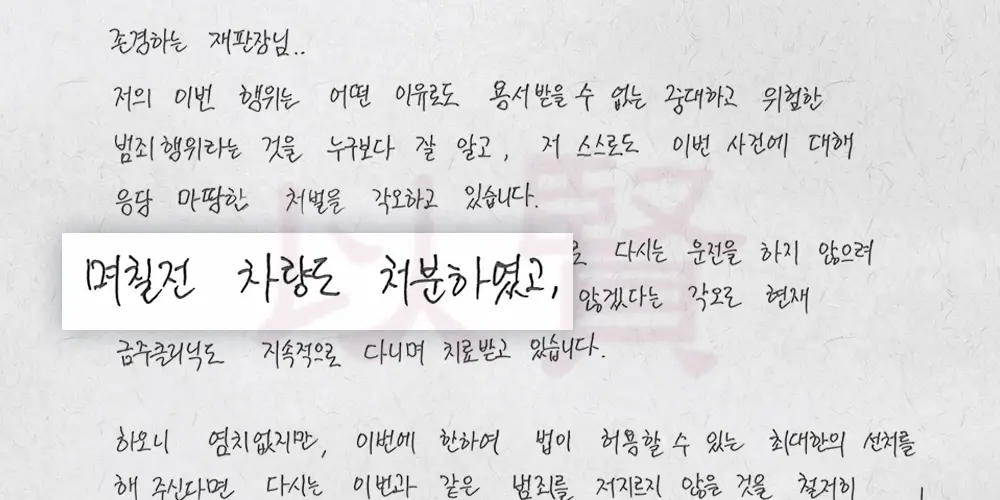 존경하는 재판장님..
저의 이번 행위는 어떤 이유로도 용서받을 수 없는 중대하고 위험한
범죄행위라는 것을 누구보다 잘 알고, 저 스스로도 이번 사건에 대해
응당 마땅한 처벌을 각오하고 있습니다.
로 다시는 운전을 하지 않으려
며칠전 차량도 처분하였고,
않겠다는 각오로 현재
금주클리닉도 지속적으로 다니며 치료받고 있습니다.
하오니 염치없지만, 이번에 한하여 법이 허용할 수 있는 최대한의 선처를
해 주신다면 다시는 이번과 같은 범죄를 저지르지 않을 것을 철저히
以賢